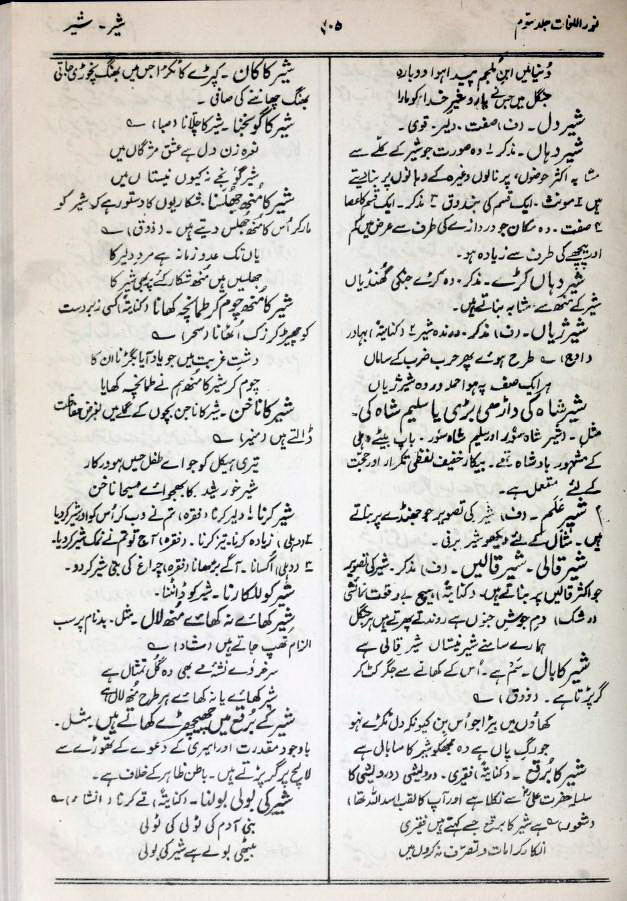 نور اللغات جلد سوم
۴۰۵
شیر - شیر
دنیا میں ابن ملجم پیدا ہوا دوبارہ
جنگل میں جس نے یارو شیر خدا کو مارا
شیر دل - (ف) صفت - دلیر - قوی -
شیر دہاں - مذکر ۱ وہ صورت جو شیر کے کلّے سے
مشابہ اکثر حوضوں، پرنالوں وغیرہ کے دہانوں پر بناتے
ہیں ۲ مونث - ایک قسم کی بندوق ۳ مذکر - ایک قسم کا عصا
۴ صفت - وہ مکان جو دروازے کی طرف سے عرض میں کم
اور پیچھے کی طرف سے زیادہ ہو -
شیر دہاں کڑے - مذکر - وہ کڑے جن کی گھنڈیاں
شیر کے منھ سے مشابہ بناتے ہیں -
شیر ژیاں - (ف) مذکر - درندہ شیر ۲ (کنایتہً) بہادر
طرح ہوئے پھر حرب ضرب کے ساماں
ہر ایک صف پہ ہوا حملہ ور وہ شیر ژیاں
شیر شاہ کی داڑھی بڑی یا سلیم شاہ کی -
مثل - (شیر شاہ سور اور سلیم شاہ سور - باپ بیٹے دہلی
کے مشہور بادشاہ تھے - بیکار خفیف لفظی تکرار اور حجت
کے لئے مستعمل ہے -
شیر عَلَم - (ف) شیر کی تصویر جو جھنڈے پر بناتے
ہیں - مثال کے لئے دیکھو شیر برفی -
شیر قالی - شیر قالیں - (ف) مذکر - شیر کی تصویر
جو اکثر قالیں پر بناتے ہیں - (کنایتہً) ہیچ - بے وقعت نمائشی
(رشک) دم جوش جنوں ہے روندتے پھرتے ہیں ہر جنگل
ہمارے سامنے شیر نیستاں شیر قالی ہے
شیر کا بال - سم ہے - اُس کے کھانے سے جگر کٹ کر
گر پڑتا ہے - (ذوق)
کھاؤں میں بیڑا جو اُس بن کیونکر دل ٹکڑے نہو
جو رگِ پاں ہے وہ مجھکو شیر کا سا بال ہے
شیر کا برقع - (کنایتہً) فقیری - درویشی (درویشی کا
سلسلہ حضرت علیؓ سے نکلا ہے اور آپ کا لقب اسد اللہ تھا)
ہے شیر کا برقع جسے کہتے ہیں فقیری
انکار کرامات و تصرف نہ کروں میں
شیر کا کان - کپڑے کا ٹکڑا جس میں بھنگ نچوڑی جاتی
بھنگ چھاننے کی صافی -
شیر کا گونجنا - شیر کا چلّانا (صبا)
نعرہ زن دل ہے عشق مژگاں میں
شیر گونجے نہ کیوں نیستاں میں
شیر کا منھ جھلسنا - شکاریوں کا دستور ہے کہ شیر کو
مار کر اُس کا منھ جھلس دیتے ہیں - (ذوق)
یاں تک عدو زمانہ ہے مرد دلیر کا
جھلسیں ہیں منھ شکار کئے پر بھی شیر کا
شیر کا منھ چوم کر طمانچہ کھانا (کنایتہً) کسی زبردست
کو چھیڑ کر زک اُٹھانا (سحر)
دشتِ غربت میں جو یاد آیا بگڑنا ان کا
چوم کر شیر کا منھ ہم نے طمانچہ کھایا
شیر کا ناخن - شیر کا ناخن بچوں کے گلے میں بغرض حفاظت
ڈالتے ہیں (منیر)
تیری ہیکل کو جو اے طفل حسیں ہو درکار
شیر خورشید کا بھجوائے مسیحا ناخن
شیر کرنا ۱ دلیر کرنا (فقرہ) تم نے دب کر اُس کو اور شیر کر دیا
۲ (دہلی) زیادہ کرنا - تیز کرنا - (فقرہ) آج تو تم نے نمک شیر کر دیا -
۳ (دہلی) اُکسانا - آگے بڑھانا (فقرہ) چراغ کی بتی شیر کر دو -
شیر کو للکارنا - شیر کو ڈانٹنا -
شیر کھائے نہ کھائے منھ لال - مثل - بدنام پر سب
الزام تھپ جاتے ہیں (شاد)
سرخرو بے نشۂ مے بھی وہ گُل تمثال ہے
شیر کھائے یا نہ کھائے ہر طرح منھ لال ہے
شیر کے برقع میں چھیچھڑے کھاتے ہیں - مثل -
باوجود مقدرت اور امیری کے دعوے کے تھوڑے سے
لالچ پر گر پڑتے ہیں - باطن ظاہر کے خلاف ہے -
شیر کی بولی بولنا - (کنایتہً) قے کرنا (انشا)
بنی آدم کی ٹولی کی ٹولی
بیٹھی بولے ہے شیر کی بولی